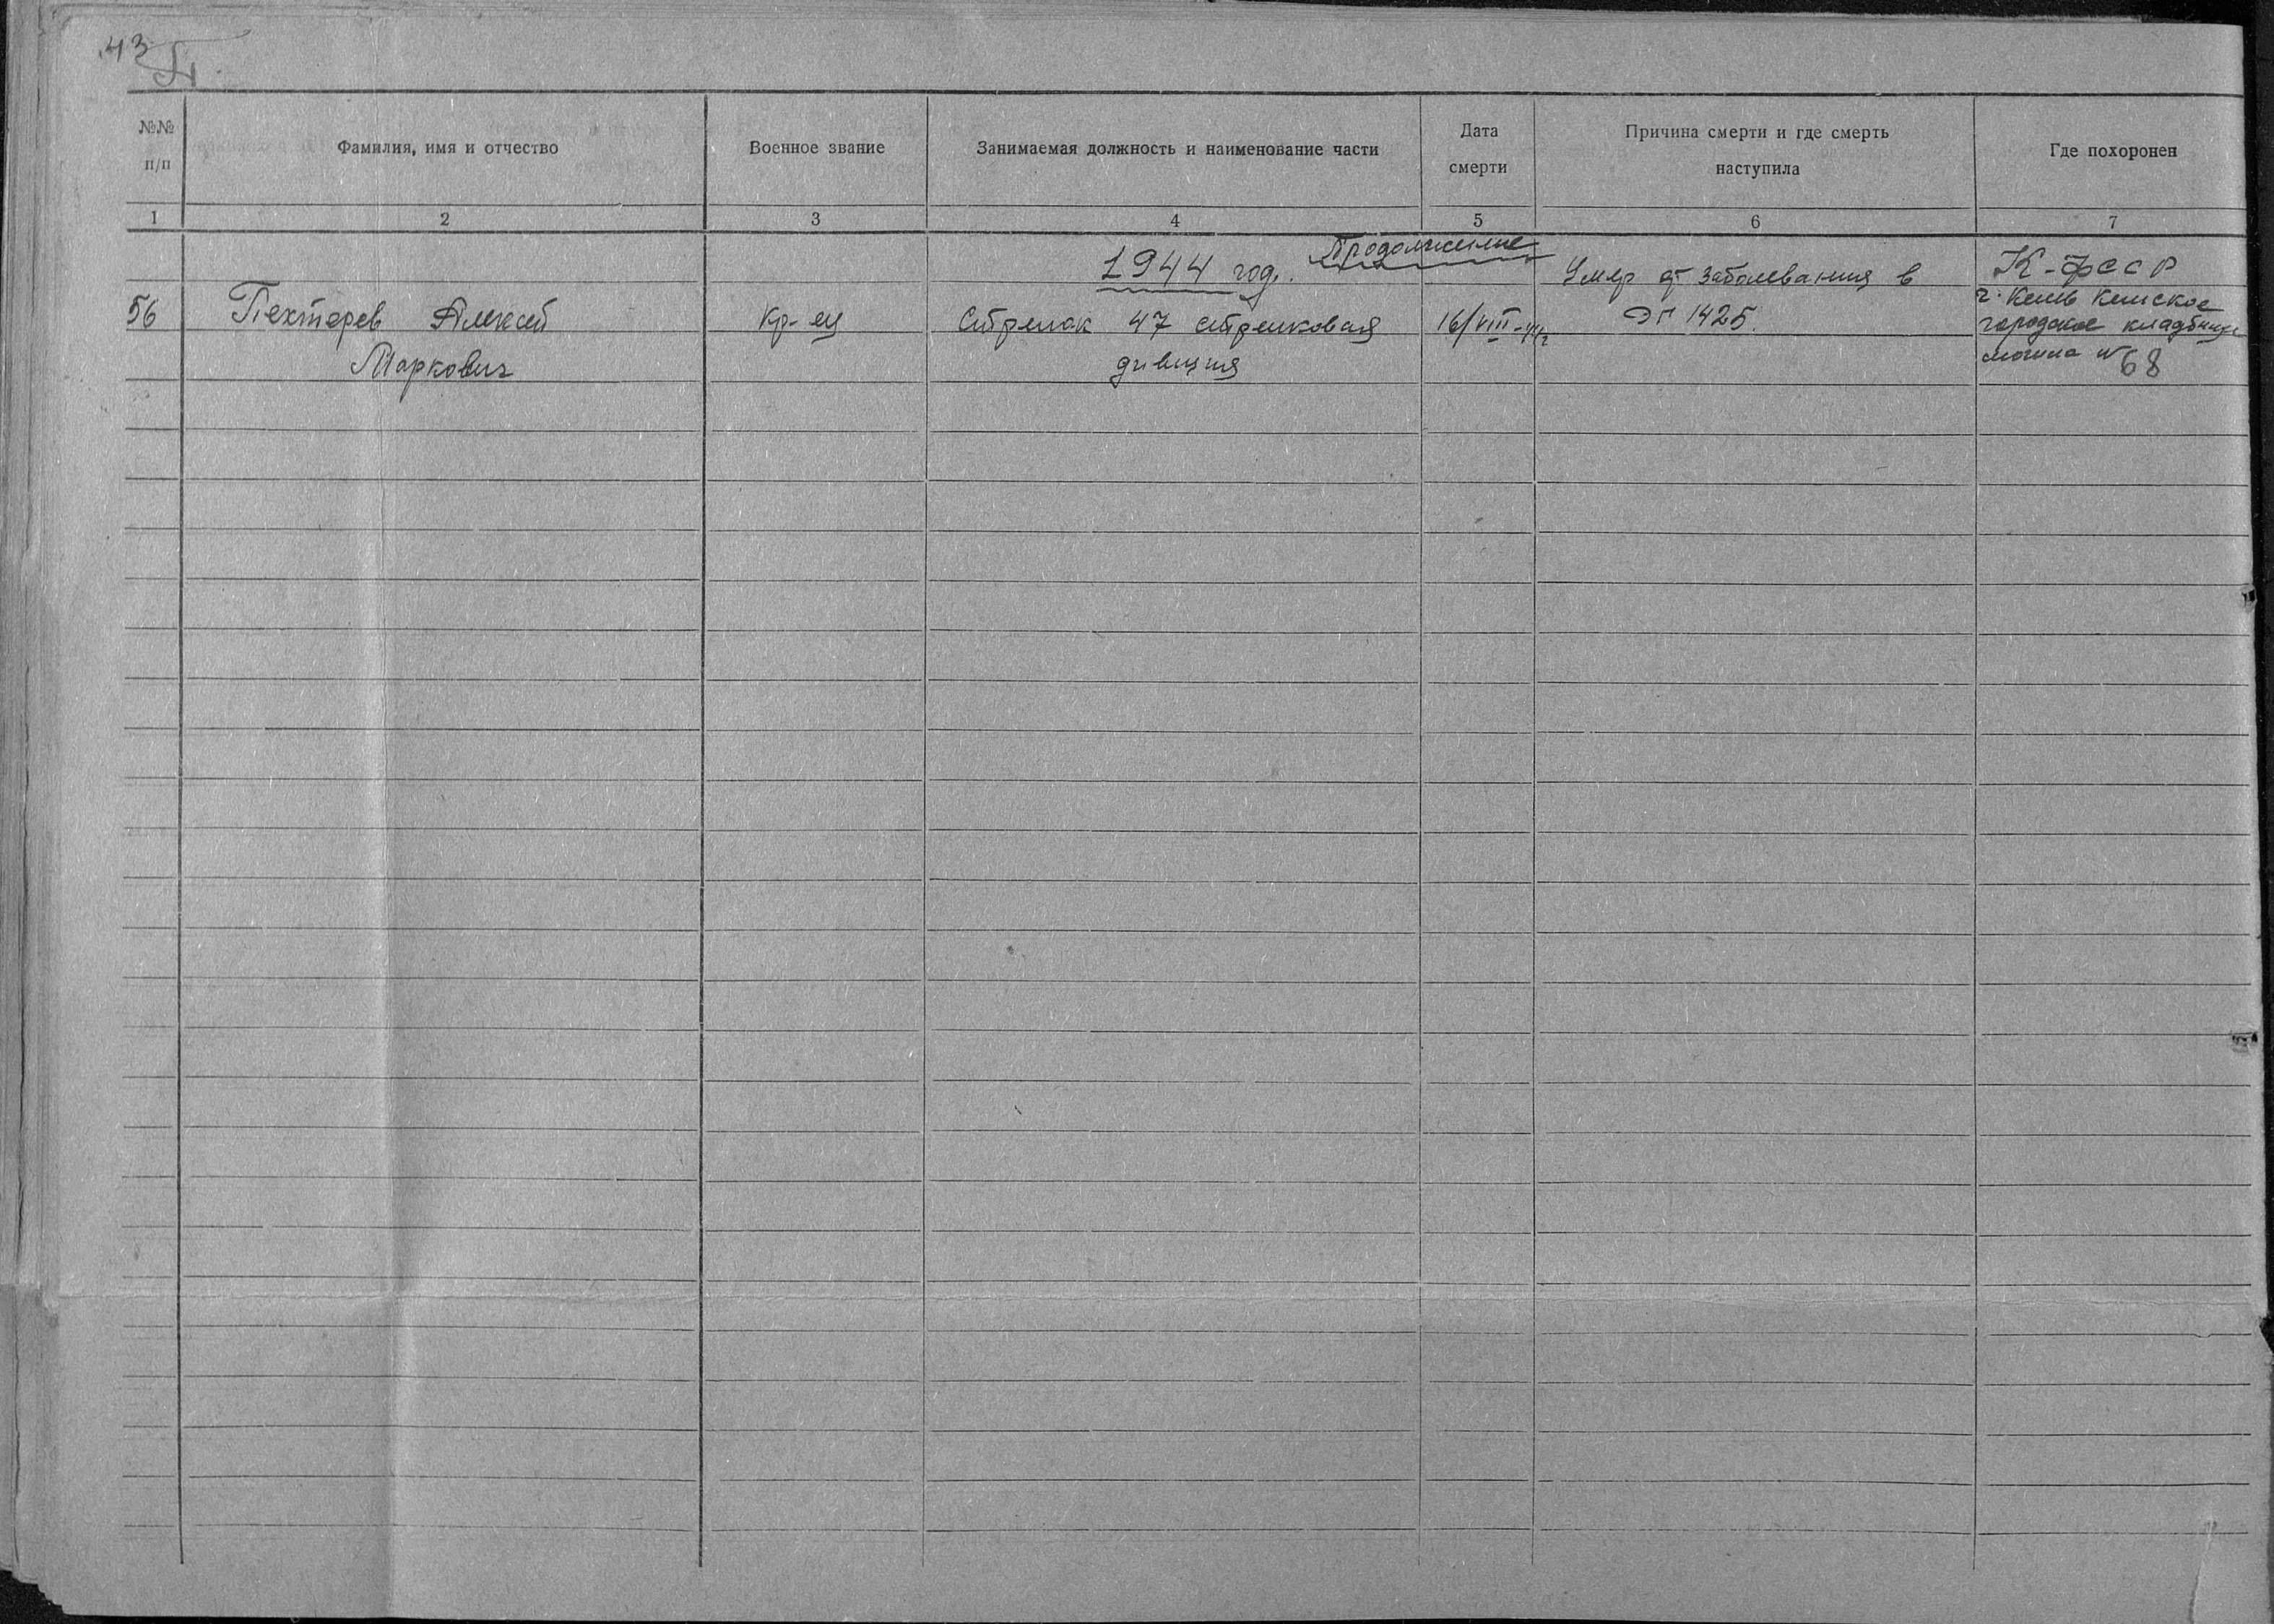 43
№№ п/п
Фамилия, имя и отчество
Военное звание
Занимаемая должность и наименование части
Дата смерти
Причина смерти и где смерть наступила
Где похоронен
1 2 3 4 5 6 7
1944 год. Продолжение
56
Пехтерев Алексей
Маркович
Кр-ец
Стрелок 47 стрелковая
дивизия
16/VIII-44г
Умер от заболевания в
ЭГ 1425.
К-ФССР
г. Кемь Кемское
городское кладбище
могила № 68